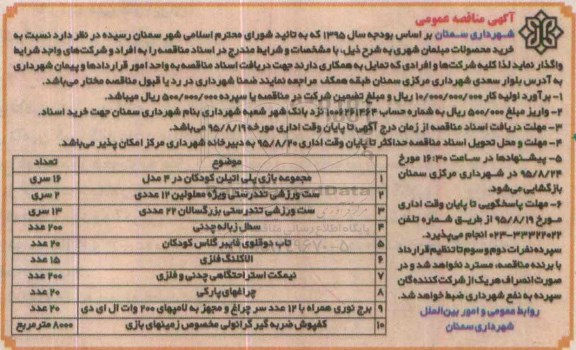 آگهی مناقصه عمومی
شهرداری سمنان بر اساس بودجه سال ۱۳۹۵ که به تائید شورای محترم اسلامی شهر سمنان رسیده در نظر دارد نسبت به
خرید محصولات مبلمان شهری به شرح ذیل، با مشخصات و شرایط مندرج در اسناد مناقصه را به افراد و شرکت‌های واجد شرایط
واگذار نماید لذا کلیه شرکت‌ها و افرادی که تمایل به همکاری دارند جهت دریافت اسناد مناقصه به واحد امور قراردادها و پیمان شهرداری
به آدرس بلوار سعدی شهرداری مرکزی سمنان طبقه همکف مراجعه نمایند ضمنا شهرداری در رد یا قبول مناقصه مختار می‌باشد.
۱- برآورد اولیه کار ۱۰/۰۰۰/۰۰۰/۰۰۰ ریال و مبلغ تضمین شرکت در مناقصه یا سپرده ۵۰۰/۰۰۰/۰۰۰ ریال میباشد.
۲- واریز مبلغ ۵۰۰/۰۰۰ ریال به شماره حساب ۱۰۰۱۲۶۱۳۶۴ نزد بانک شهر شعبه شهرداری بنام شهرداری سمنان جهت خرید اسناد.
۳- مهلت دریافت اسناد مناقصه از زمان درج آگهی تا پایان وقت اداری مورخه ۹۵/۸/۱۹ می‌باشد.
۴- مهلت و محل تحویل اسناد مناقصه حداکثر تا پایان وقت اداری ۹۵/۸/۲۰ به دبیرخانه شهرداری مرکز امکان پذیر می‌باشد.
۵- پیشنهادها در ساعت ۱۶:۳۰ مورخ
۹۵/۸/۲۴ در شهرداری مرکزی سمنان
بازگشایی می‌شود.
۶- مهلت پاسخگویی تا پایان وقت اداری
مورخ ۹۵/۸/۱۹ از طریق شماره تلفن
۰۲۳-۳۳۳۲۲۰۲۲ انجام می‌پذیرد.
سپرده نفرات دوم و سوم تا تنظیم قرارداد
با برنده مناقصه، مسترد نخواهد شد و در
صورت انصراف هریک از شرکت کننده گان
سپرده به نفع شهرداری ضبط خواهد شد.
روابط عمومی و امور بین‌الملل
شهرداری سمنان
موضوع تعداد
۱ مجموعه بازی پلی اتیلن کودکان در ۴ مدل ۱۶ سری
۲ ست ورزشی تندرستی ویژه معلولین ۱۲ عددی ۲ سری
۳ ست ورزشی تندرستی بزرگسالان ۲۲ عددی ۱۳ سری
۴ سطل زباله چدنی ۲۰۰ عدد
۵ تاب دوقلوی فایبر گلاس کودکان ۲۰ عدد
۶ الاکلنگ فلزی ۱۵ عدد
۷ نیمکت استراحتگاهی چدنی و فلزی ۲۰۰ عدد
۸ چراغهای پارکی ۲۰ عدد
۹ برج نوری همراه با ۱۲ عدد سر چراغ و مجهز به لامپهای ۲۰۰ وات ال ای دی ۲۰ عدد
۱۰ کفپوش ضربه گیر گرانولی مخصوص زمینهای بازی ۸۰۰۰ مترمربع